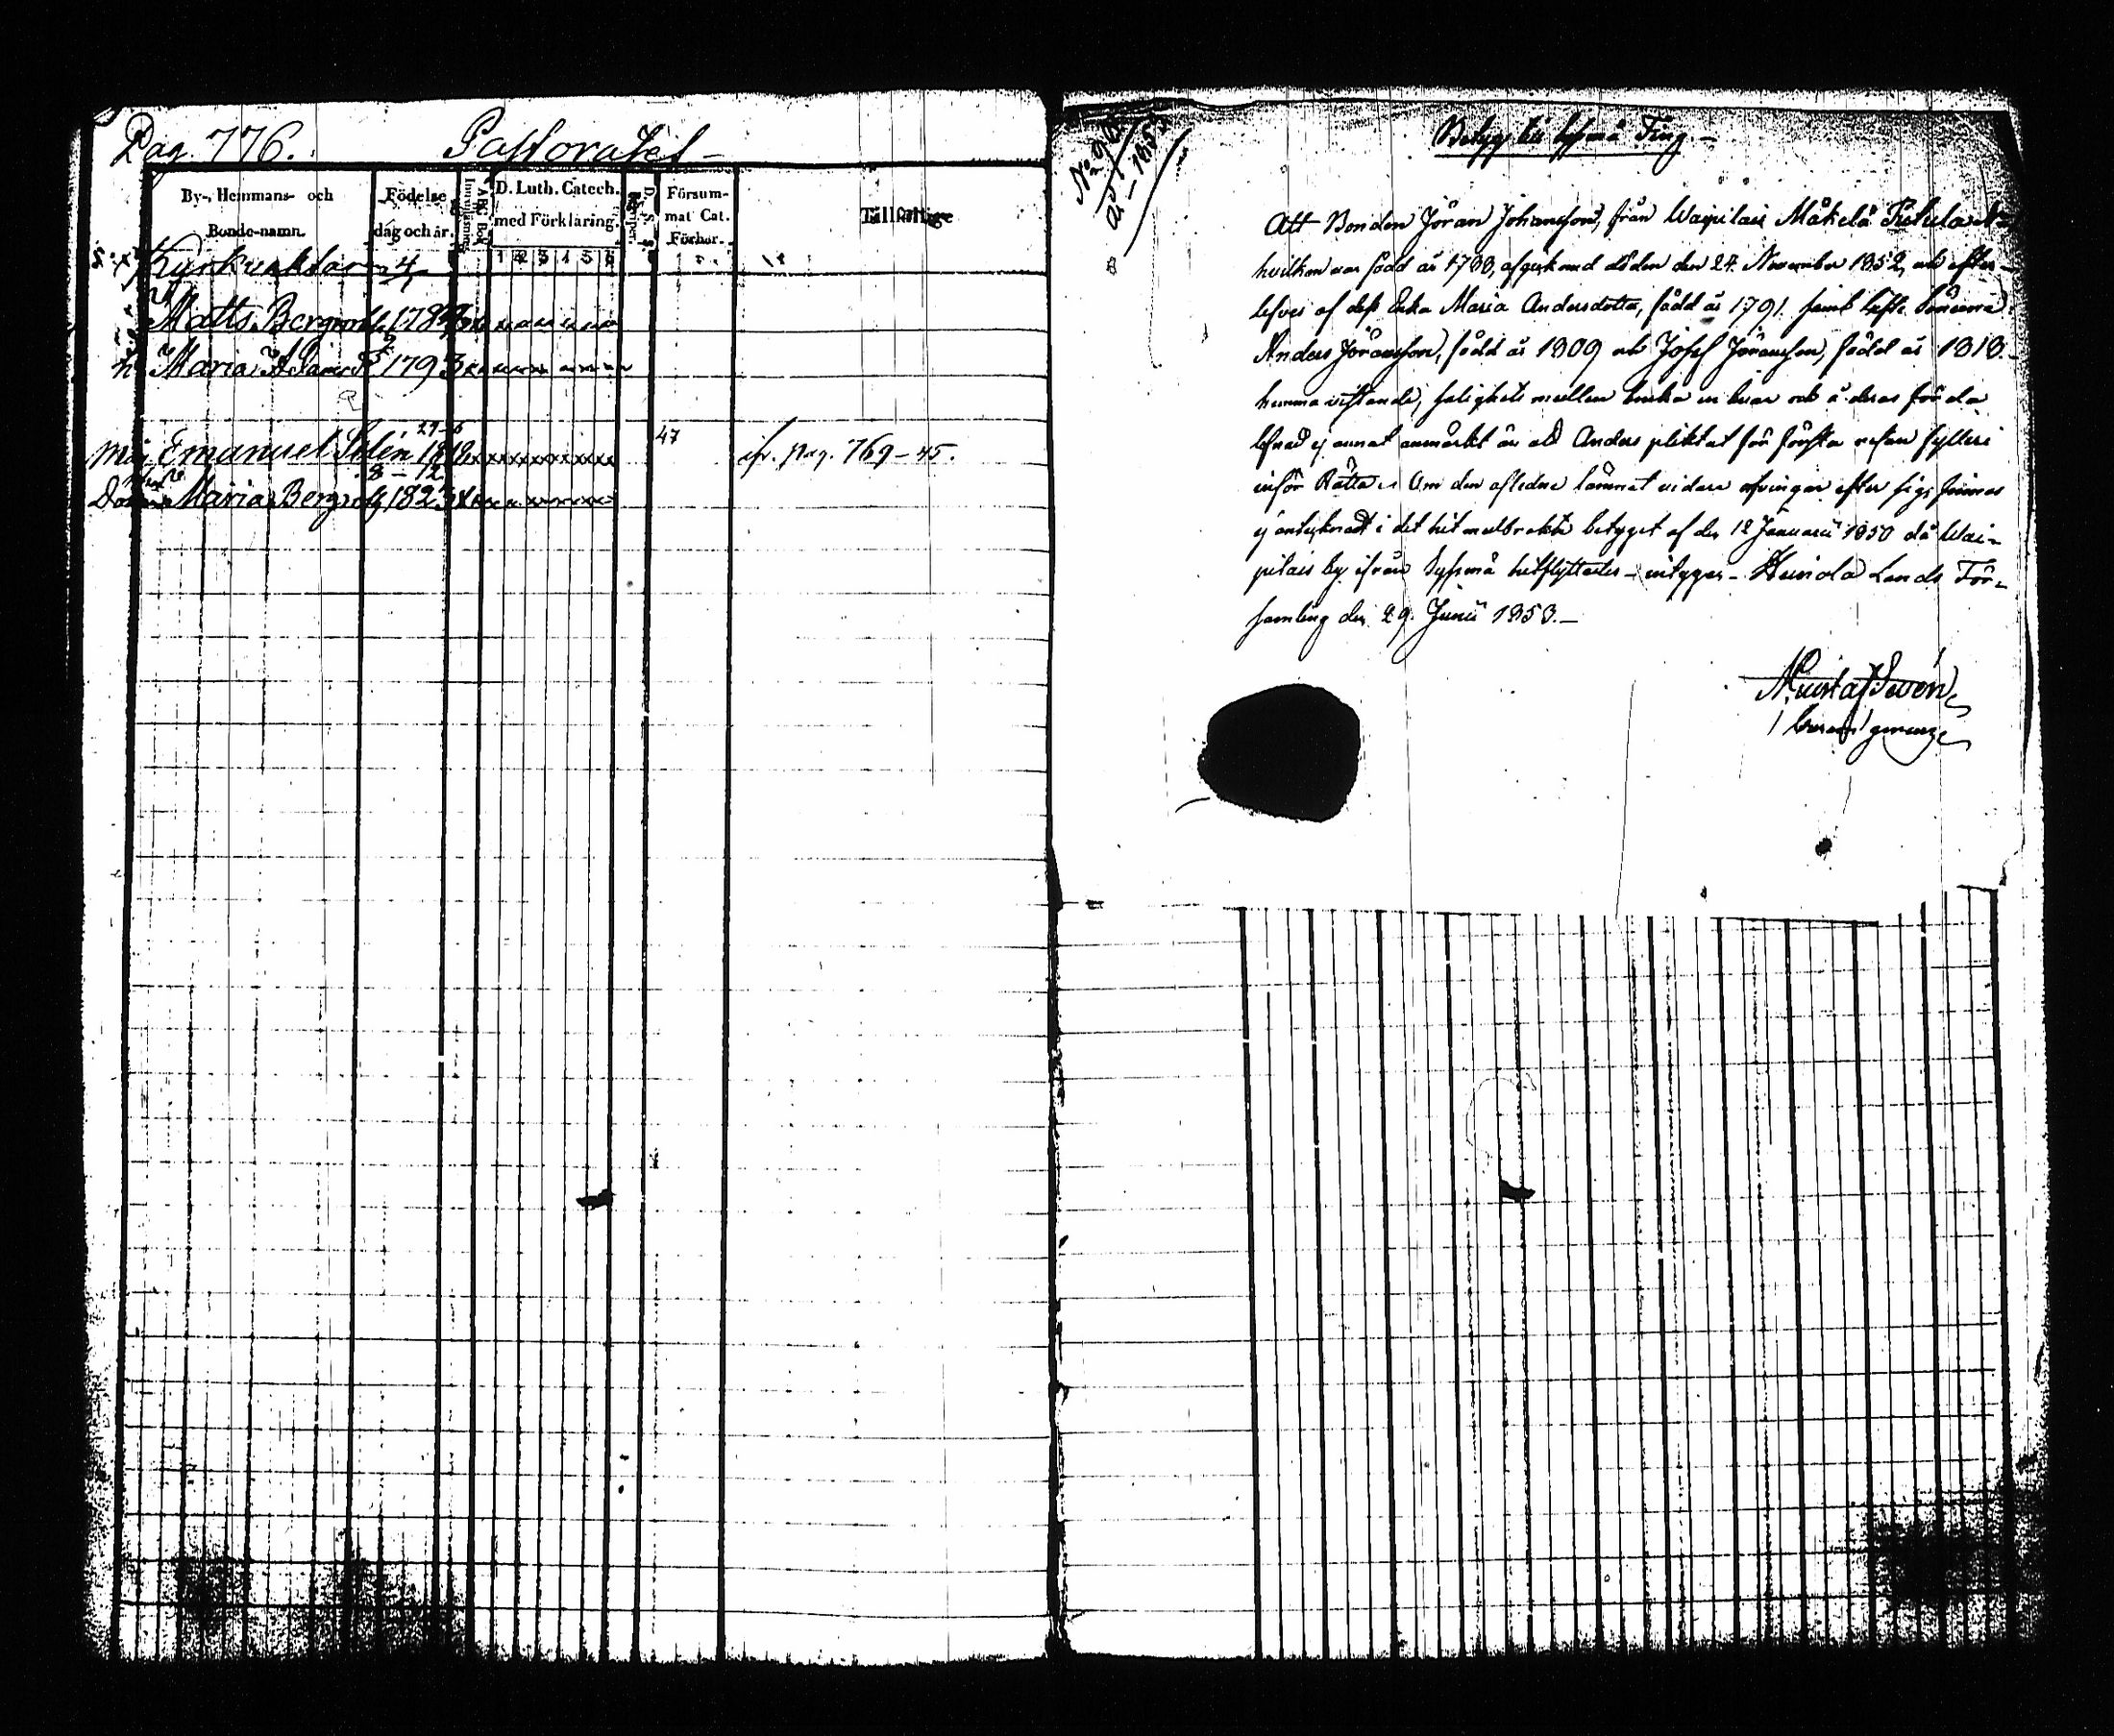 Pag. 776. Pastoratet
By-, Hemmans- och Bonde-namn.
Födelse dag och år.
Innanläsning
ABC Bok
D. Luth. Catech. med Förklaring.
1 2 3 4 5 6
D. S. S.
Försum-
mat Cat.
Förhör.
Tillfällige
Kyrkvaktar
Matts Bergroth 178
h Maria Adamsd 1793
29-6
Måg Emanuel Silén 1818 47 cfr. pag. 769-45.
8-12
Dotter Maria Bergroth 1823
1853
Betyg till Sysmä Ting.-
Att Bonden Jöran Johansson, från Waipilais Mäkelä
hvilken var född år 1788, afgick med döden den 24. November 1852, och efter-
lefves af dess Enka Maria Andersdotter, född år 1791. samt Sönerna
Anders Jöransson, född år 1809 och Josef Jöransson, född år 1818.
hemma vistande,
lefnad ej annat anmärkt än att Anders pliktat för första resan fylleri
inför Rätta. Om den aflidne lämnat vidare arfvingar efter sig, finnes
ej antecknadt i det hit medbrakte betyget af den 12 Januarii 1850 då Wai-
pilais by ifrån Sysmä hitflyttades - intygar - Heinola Lands För-
samling den 29. Junii 1853.-